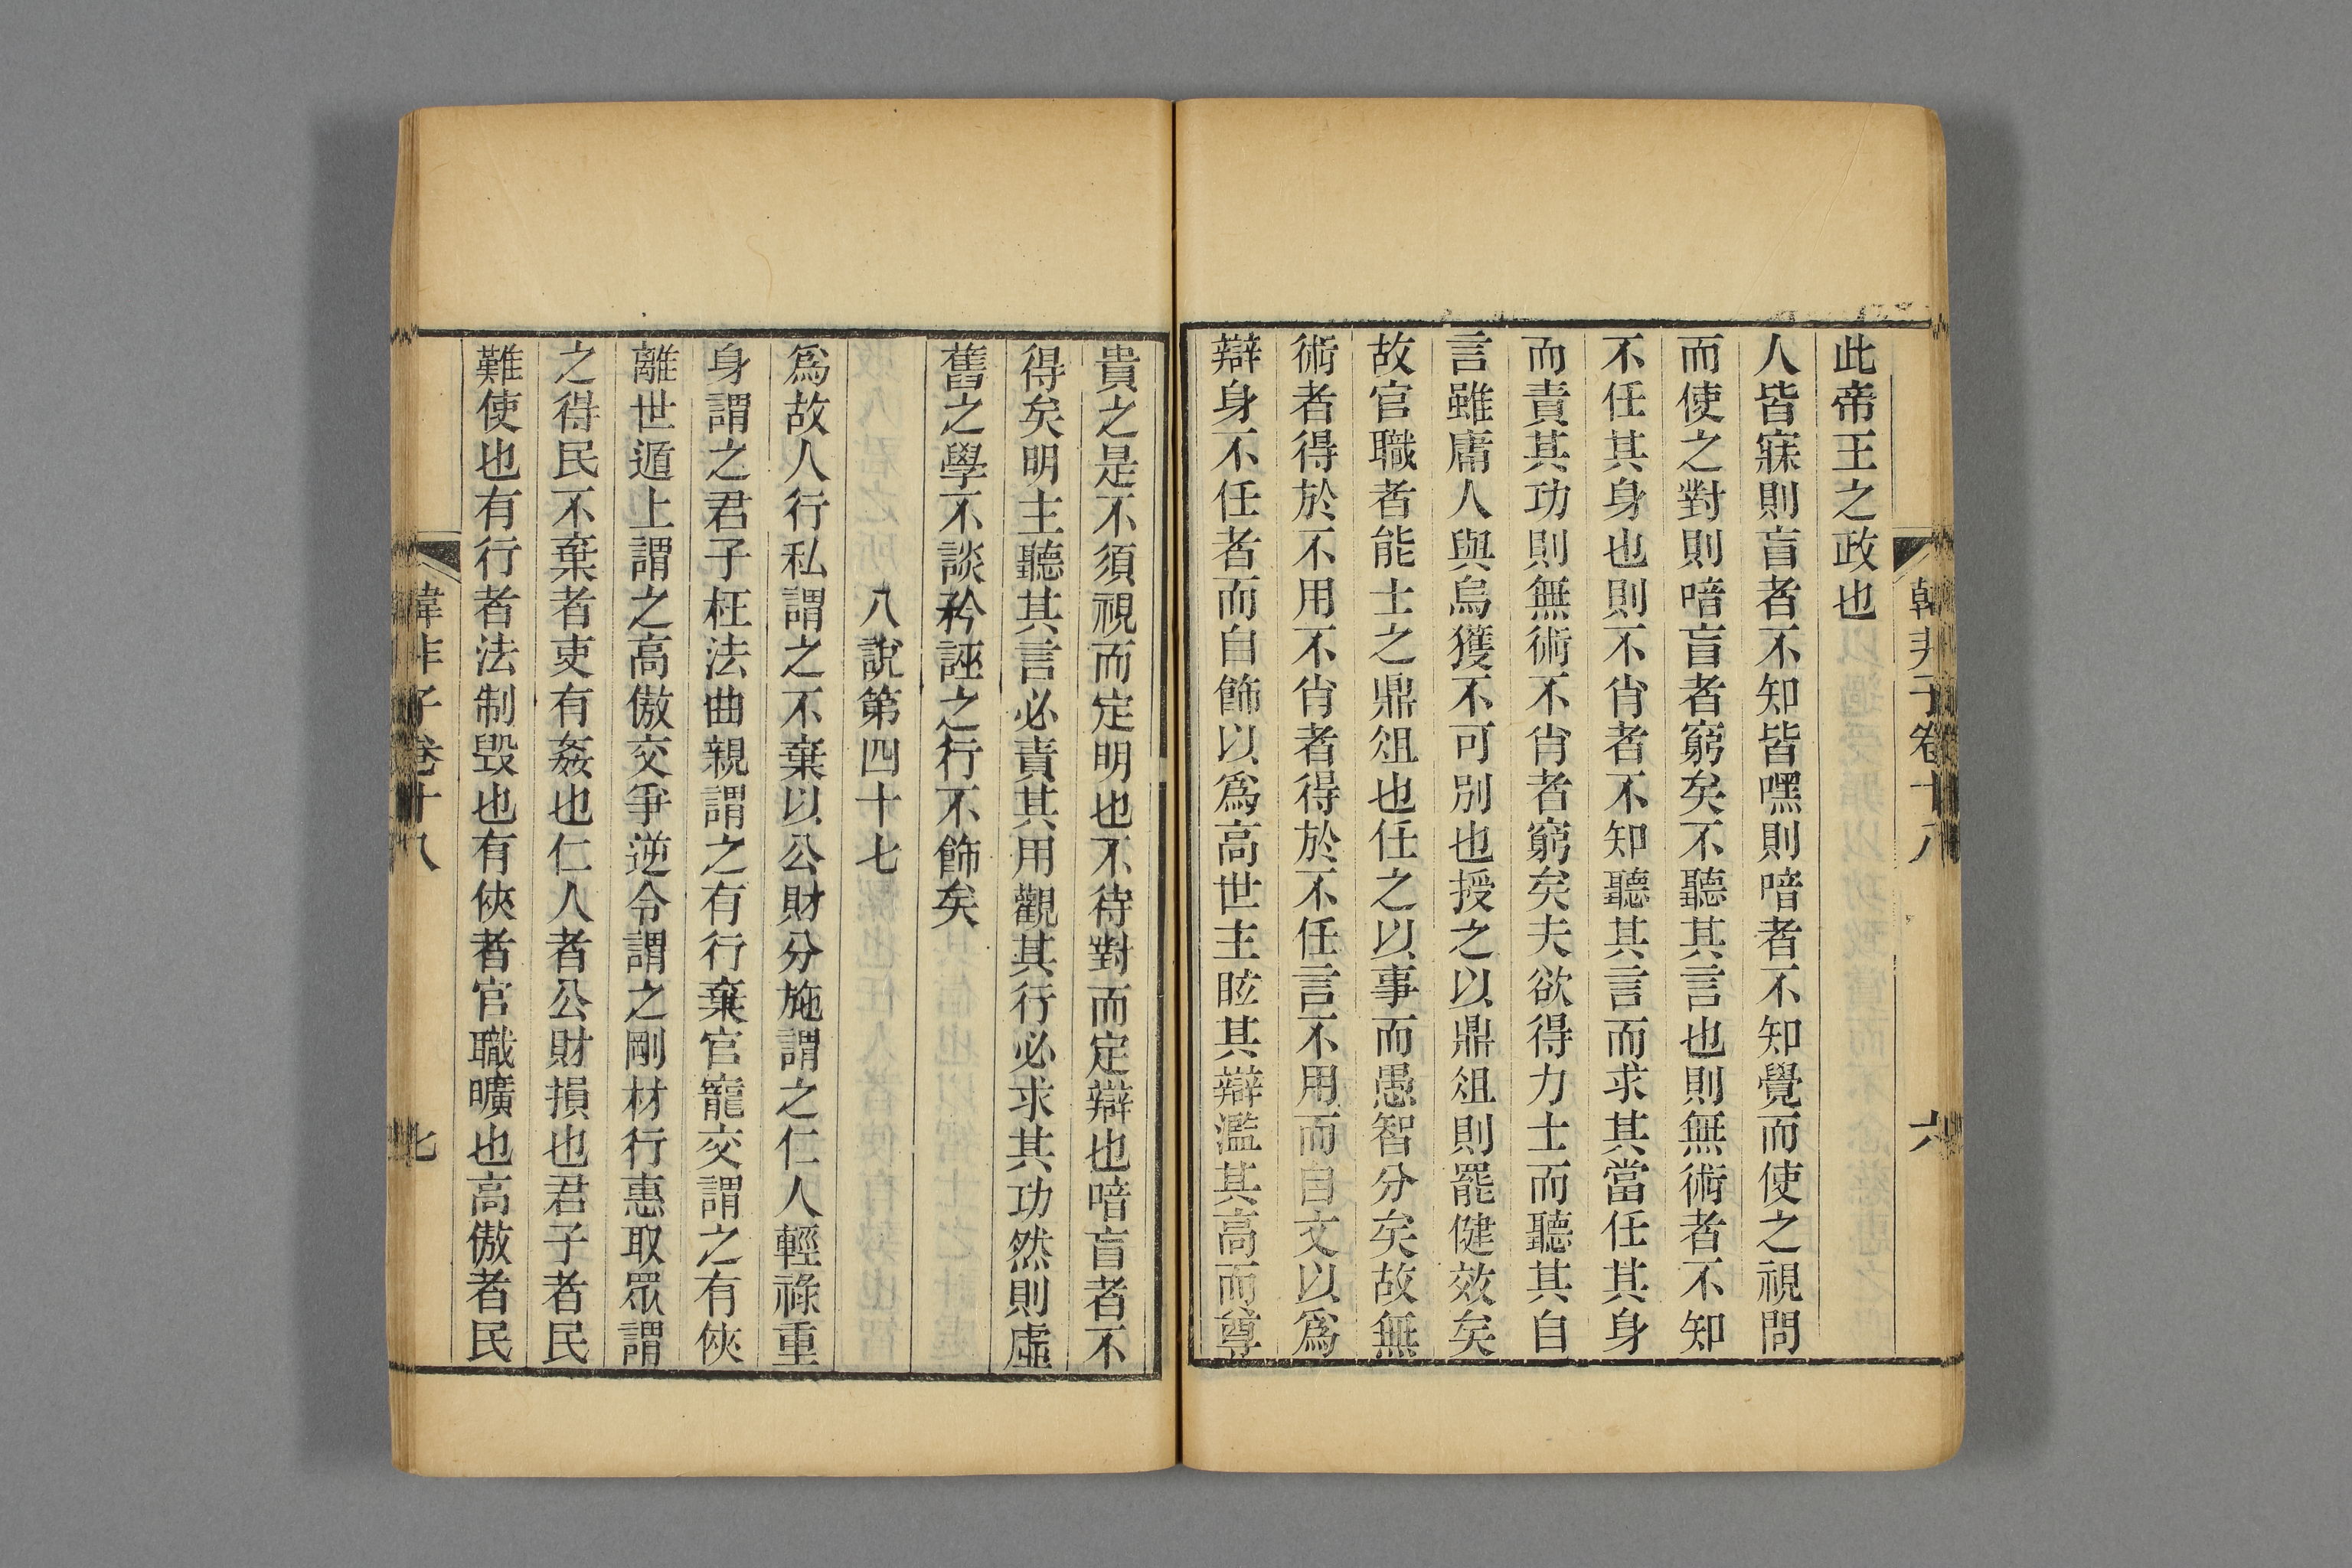 韓非子卷十八
六
此帝王之政也
人皆寐則盲者不知皆嘿則喑者不知覺而使之視問
而使之對則喑盲者窮矣不聽其言也則無術者不知
不任其身也則不肖者不知聽其言而求其當任其身
而責其功則無術不肖者窮矣夫欲得力士而聽其自
言雖庸人與烏獲不可別也授之以鼎俎則罷健效矣
故官職者能士之鼎俎也任之以事而愚智分矣故無
術者得於不用不肖者得於不任言不用而自文以爲
辯身不任者而自飾以爲高世主眩其辯濫其高而尊
貴之是不須視而定明也不待對而定辯也喑盲者不
得矣明主聽其言必責其用觀其行必求其功然則虛
舊之學不談矜誣之行不飾矣
八說第四十七
爲故人行私謂之不棄以公財分施謂之仁人輕祿重
身謂之君子枉法曲親謂之有行棄官寵交謂之有俠
離世遁上謂之高傲交爭逆令謂之剛材行惠取眾謂
之得民不棄者吏有姦也仁人者公財損也君子者民
難使也有行者法制毀也有俠者官職曠也高傲者民
韓非子卷十八
七